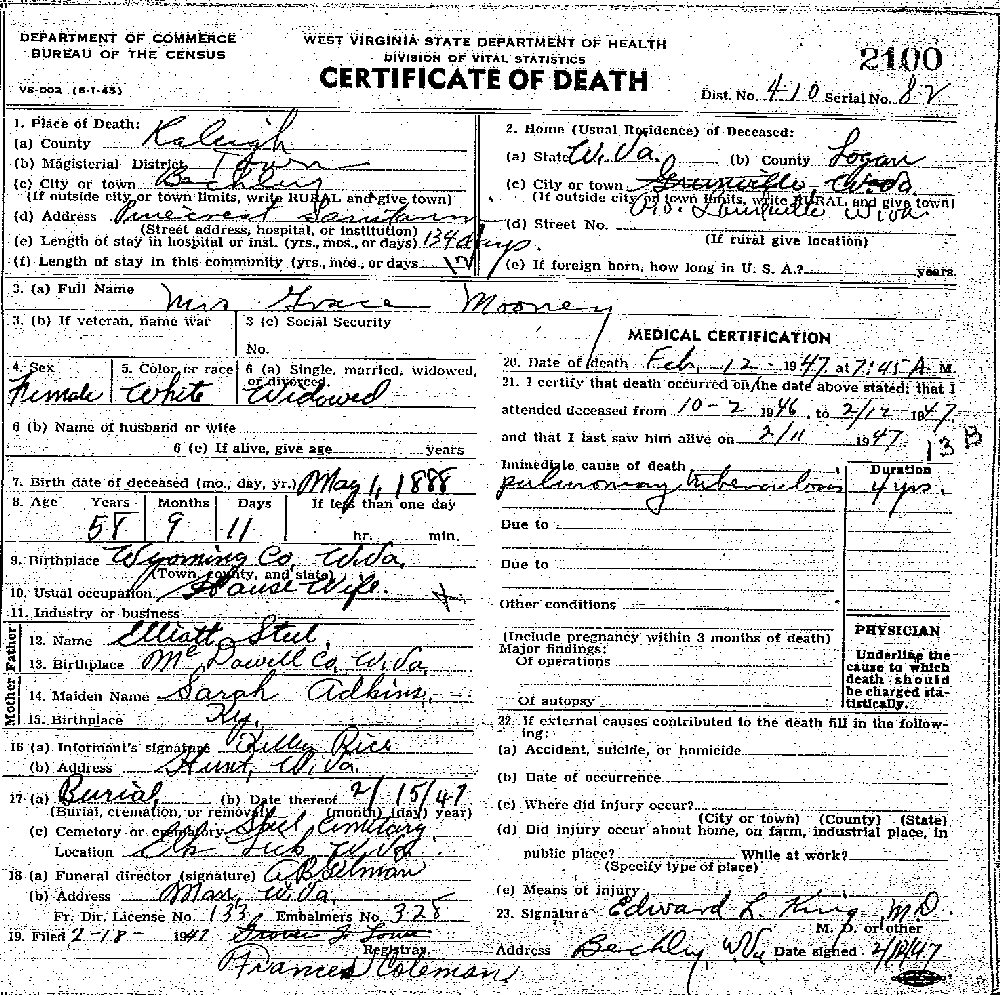 DEPARTMENT OF COMMERCE
BUREAU OF THE CENSUS
VS-002 (6-1-45)
WEST VIRGINIA STATE DEPARTMENT OF HEALTH
DIVISION OF VITAL STATISTICS
CERTIFICATE OF DEATH
2100
Dist. No. 410 Serial No. 82
1. Place of Death:
(a) County Raleigh
(b) Magisterial District Town
(c) City or town Beckley
(If outside city or town limits, write RURAL and give town)
(d) Address Pinecrest Sanitarium
(Street address, hospital, or institution)
(e) Length of stay in hospital or inst. (yrs., mos., or days) 134 days.
(f) Length of stay in this community (yrs., mos., or days
2. Home (Usual Residence) of Deceased:
(a) State W. Va. (b) County Logan
(c) City or town W. Va.
(If outside city or town limits, write RURAL and give town)
W. Va.
(d) Street No.
(If rural give location)
(e) If foreign born, how long in U. S. A.? years.
3. (a) Full Name Mrs Grace Mooney
3. (b) If veteran, name war
3 (c) Social Security
No.
4. Sex Female
5. Color or race White
6 (a) Single, married, widowed, or divorced. Widowed
6 (b) Name of husband or wife
6 (c) If alive, give age years
7. Birth date of deceased (mo., day, yr.) May 1, 1888
8. Age Years Months Days If less than one day
58 9 11 hr. min.
9. Birthplace Wyoming Co, W. Va.
(Town, county, and state)
10. Usual occupation House Wife.
11. Industry or business
Father
12. Name Elliott Steel.
13. Birthplace McDowell Co, W. Va.
Mother
14. Maiden Name Sarah Adkins,
15. Birthplace Ky.
16 (a) Informant's signature Kelly Rice
(b) Address Hunt, W. Va.
17. (a) Burial, (b) Date thereof 2/15/47
(Burial, cremation, or removal) (month) (day) (year)
(c) Cemetery or crematory Steel Cemetary.
Location Elk Lick W. Va.
18 (a) Funeral director (signature)
(b) Address Man, W. Va.
Fr. Dir. License No. 133 Embalmers No. 328
19. Filed 2-18- 1947
Registrar
Frances Coleman
MEDICAL CERTIFICATION
20. Date of death Feb. 12 - 1947 at 7:45 A. M.
21. I certify that death occurred on the date above stated; that I
attended deceased from 10-2 1946, to 2/12 1947
and that I last saw him alive on 2/11 1947.
13 B
Immediate cause of death Duration
pulmonary tuberculosis 4 yrs.
Due to
Due to
Other conditions
(Include pregnancy within 3 months of death)
Major findings:
Of operations
Of autopsy
PHYSICIAN
Underline the
cause to which
death should
be charged sta-
tistically.
22. If external causes contributed to the death fill in the follow-
ing:
(a) Accident, suicide, or homicide
(b) Date of occurrence
(c) Where did injury occur?
(City or town) (County) (State)
(d) Did injury occur about home, on farm, industrial place, in
public place? While at work?
(Specify type of place)
(e) Means of injury
23. Signature Edward L. King M.D.
M. D. or other
Address Beckley W Va Date signed 2/12/47